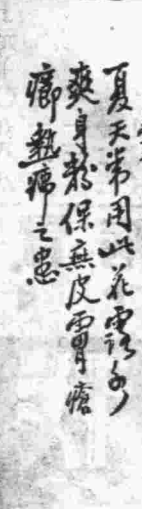 夏天常用此花露水
爽身粉保無皮膚瘡
癤熱痱之患